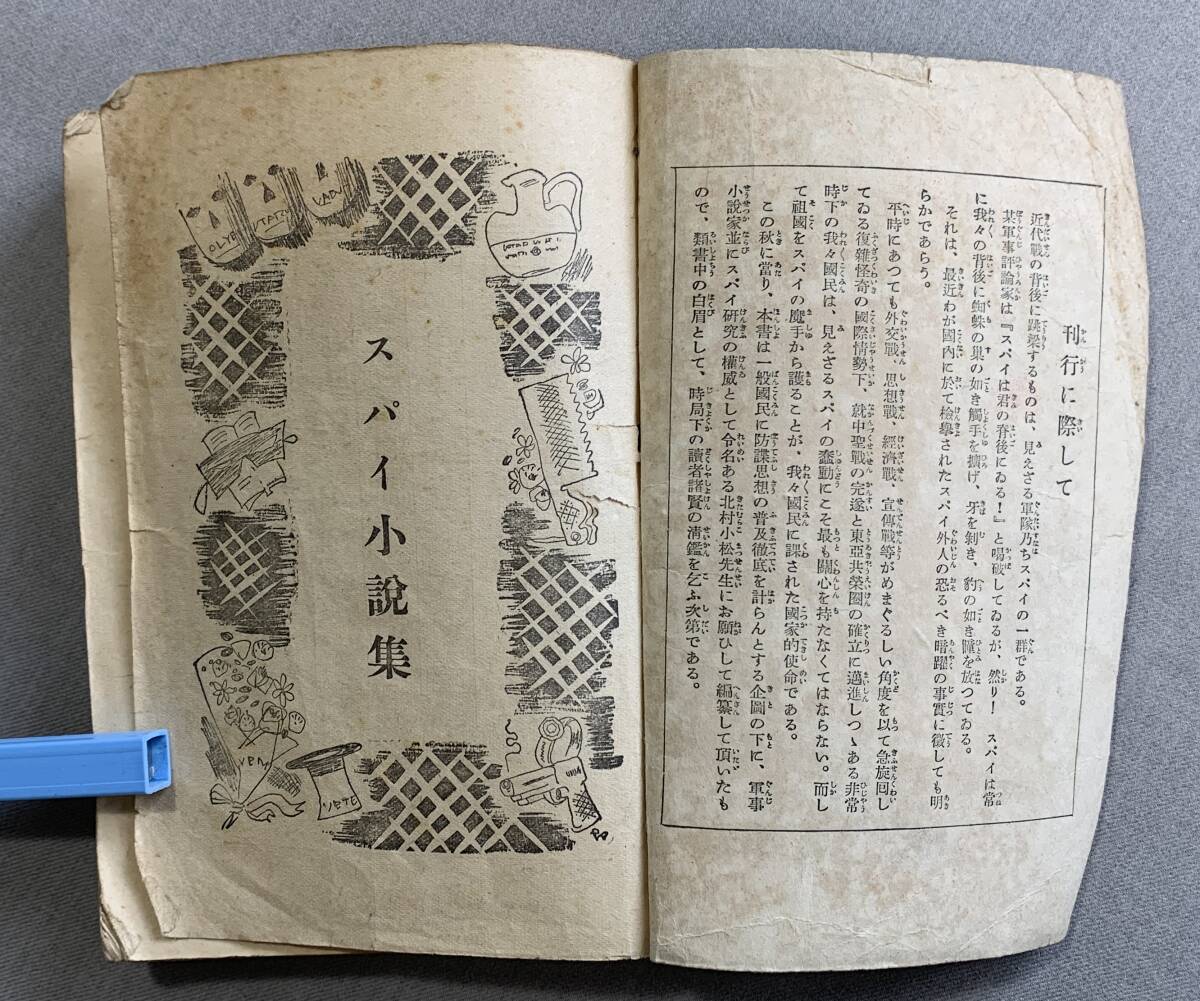 刊行に際して
近代戰の背後に跳梁するものは、見えざる軍隊乃ちスパイの一群である。
某軍事評論家は『スパイは君の脊後にゐる！』と喝破してゐるが、然り！　スパイは常
に我々の背後に蜘蛛の巣の如き觸手を擴げ、牙を剝き、豹の如き瞳を放つてゐる。
それは、最近わが國內に於て檢擧されたスパイ外人の恐るべき暗躍の事實に徵しても明
らかであらう。
平時にあつても外交戰、思想戰、經濟戰、宣傳戰等がめまぐるしい角度を以て急旋囘し
てゐる復雜怪奇の國際情勢下、就中聖戰の完遂と東亞共榮圈の確立に邁進しつゝある非常
時下の我々國民は、見えざるスパイの蠢動にこそ最も關心を持たなくてはならない。而し
て祖國をスパイの魔手から護ることが、我々國民に課された國家的使命である。
この秋に當り、本書は一般國民に防諜思想の普及徹底を計らんとする企圖の下に、軍事
小說家並にスパイ硏究の權威として令名ある北村小松先生にお願ひして編纂して頂いたも
ので、類書中の白眉として、時局下の讀者諸賢の淸鑑を乞ふ次第である。
スパイ小說集